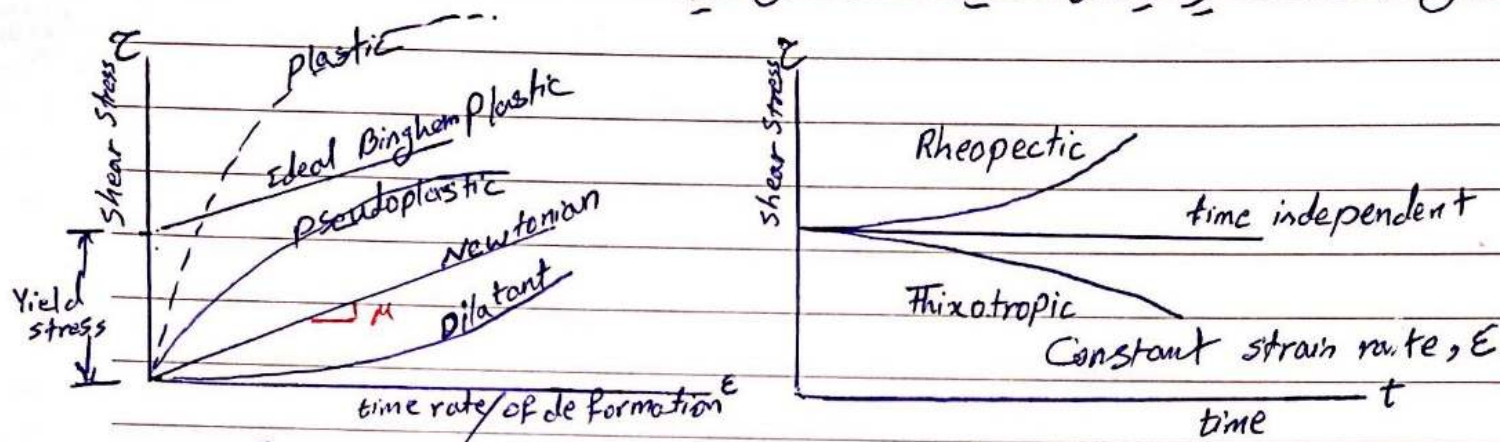 τ
Shear Stress
plastic
Edeal Binghem Plastic
Pseudoplastic
Newtonian
μ
Dilatant
Yield
stress
time rate/of deformation ε
τ
Shear Stress
Rheopectic
time independent
Thixotropic
Constant strain rate, ε
t
time